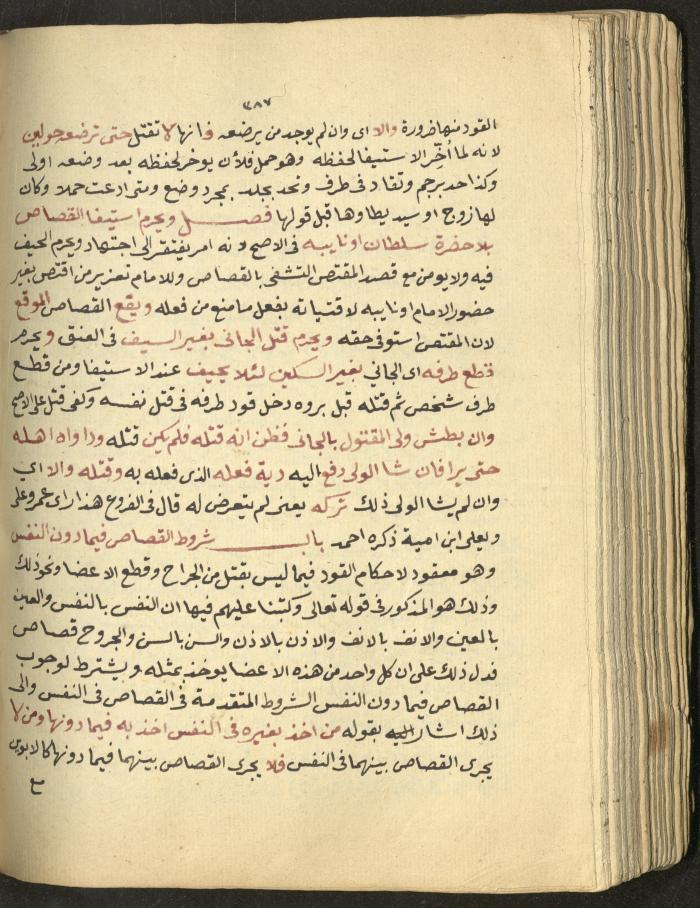 ٣٨٧
القود منها ضرورة والا اى وان لم يوجد من يرضعه فانها لا تقتل حتى ترضعه حولين
لانه لما أخّر الاستيفا لحفظه وهو حمل فلأن يوخر لحفظه بعد وضعه اولى
وكذا حد برجم وتقاد فى طرف وتحد بجلد بمجرد وضع ومتى ادعت حملا وكان
لها زوج او سيد يطاوها قبل قولها فصل ويحرم استيفا القصاص
بلا حضرة سلطان او نايبه فى الاصح لانه امر يفتقر الى اجتهاد ويحرم الحيف
فيه ولا يومن مع قصد المقتص التشفى بالقصاص وللامام تعزير من اقتص بغير
حضور الامام او نايبه لافتياته بفعل ما منع من فعله ويقع القصاص الموقع
لان المقتص استوفى حقه ويحرم قتل الجانى بغير السيف فى العنق ويحرم
قطع طرفه اى الجاني بغير السكين لئلا يحيف عند الاستيفا ومن قطع
طرف شخص ثم قتله قبل بروه دخل قود طرفه فى قتل نفسه وكفى قتل على الاصح
وان بطش ولى المقتول بالجانى فظن انه قتله فلم يكن قتله وداواه اهله
حتى برا فان شا الولى دفع اليه دية فعله الذى فعله به وقتله والا اي
وان لم يشا الولى ذلك تركه يعنى لم يتعرض له قال فى الفروع هذا راى عمر وعلى
ويعلى ابن امية ذكره احمد باب شروط القصاص فيما دون النفس
وهو معقود لاحكام القود فيما ليس بقتل من الجراح وقطع الاعضا ونحو ذلك
وذلك هو المذكور فى قوله تعالى وكتبنا عليهم فيها ان النفس بالنفس والعين
بالعين والانف بالانف والاذن بالاذن والسن بالسن والجروح قصاص
فدل ذلك على ان كل واحد من هذه الاعضا يوخذ بمثله ويشترط لوجوب
القصاص فيما دون النفس الشروط المتقدمة فى القصاص فى النفس والى
ذلك اشار اليه بقوله من اخذ بغيره فى النفس اخذ به فيما دونها ومن لا
يجرى القصاص بينهما فى النفس فلا يجرى القصاص بينهما فيما دونها كالابوين